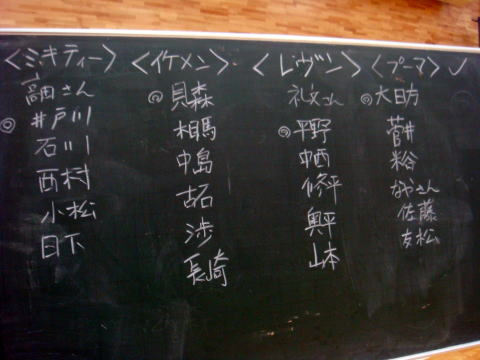 <ミキティー>
高田さん
◎井戸川
石川
西村
小松
日下
<イケメン>
◎貝森
相馬
中島
古石
渉
長崎
<レヴン>
礼文さん
◎平野
中西
修平
奥平
山本
<プーマ>
◎大日方
菅井
粉谷
なやさん
佐藤
友松
✓